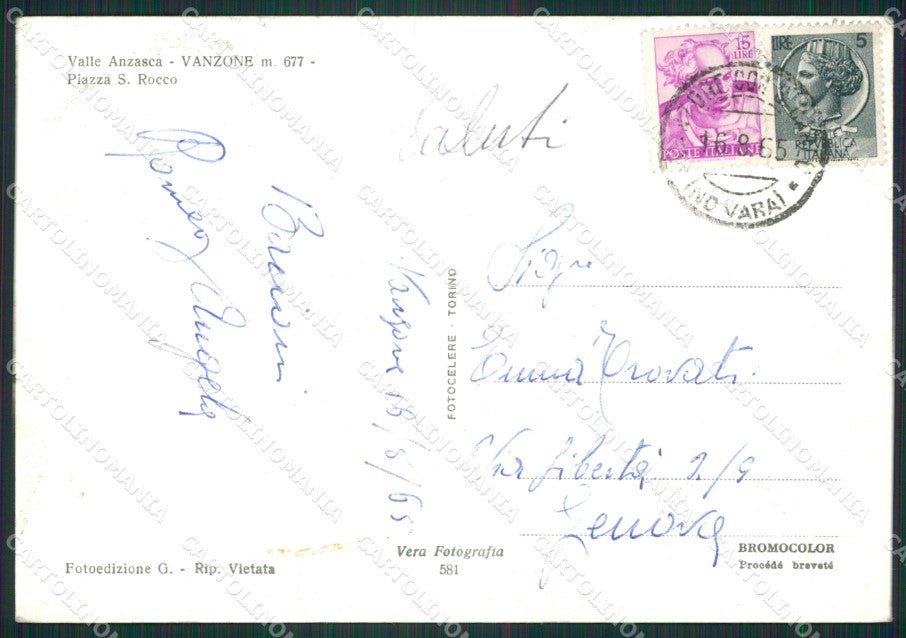 Valle Anzasca - VANZONE m. 677 -
Piazza S. Rocco
15
LIRE
POSTE ITALIANE
LIRE 5
REPVBBLICA
ITALIANA
16.8.65
(NOVARA)
Saluti
Bacioni
Romeo Angela
Vanzone 16/8/65
FOTOCELERE - TORINO
Sig.
Emma Trovati
Via Libertà 2/9
Genova
Vera Fotografia
581
BROMOCOLOR
Procédé breveté
Fotoedizione G. - Rip. Vietata
CARTOLINOMANIA